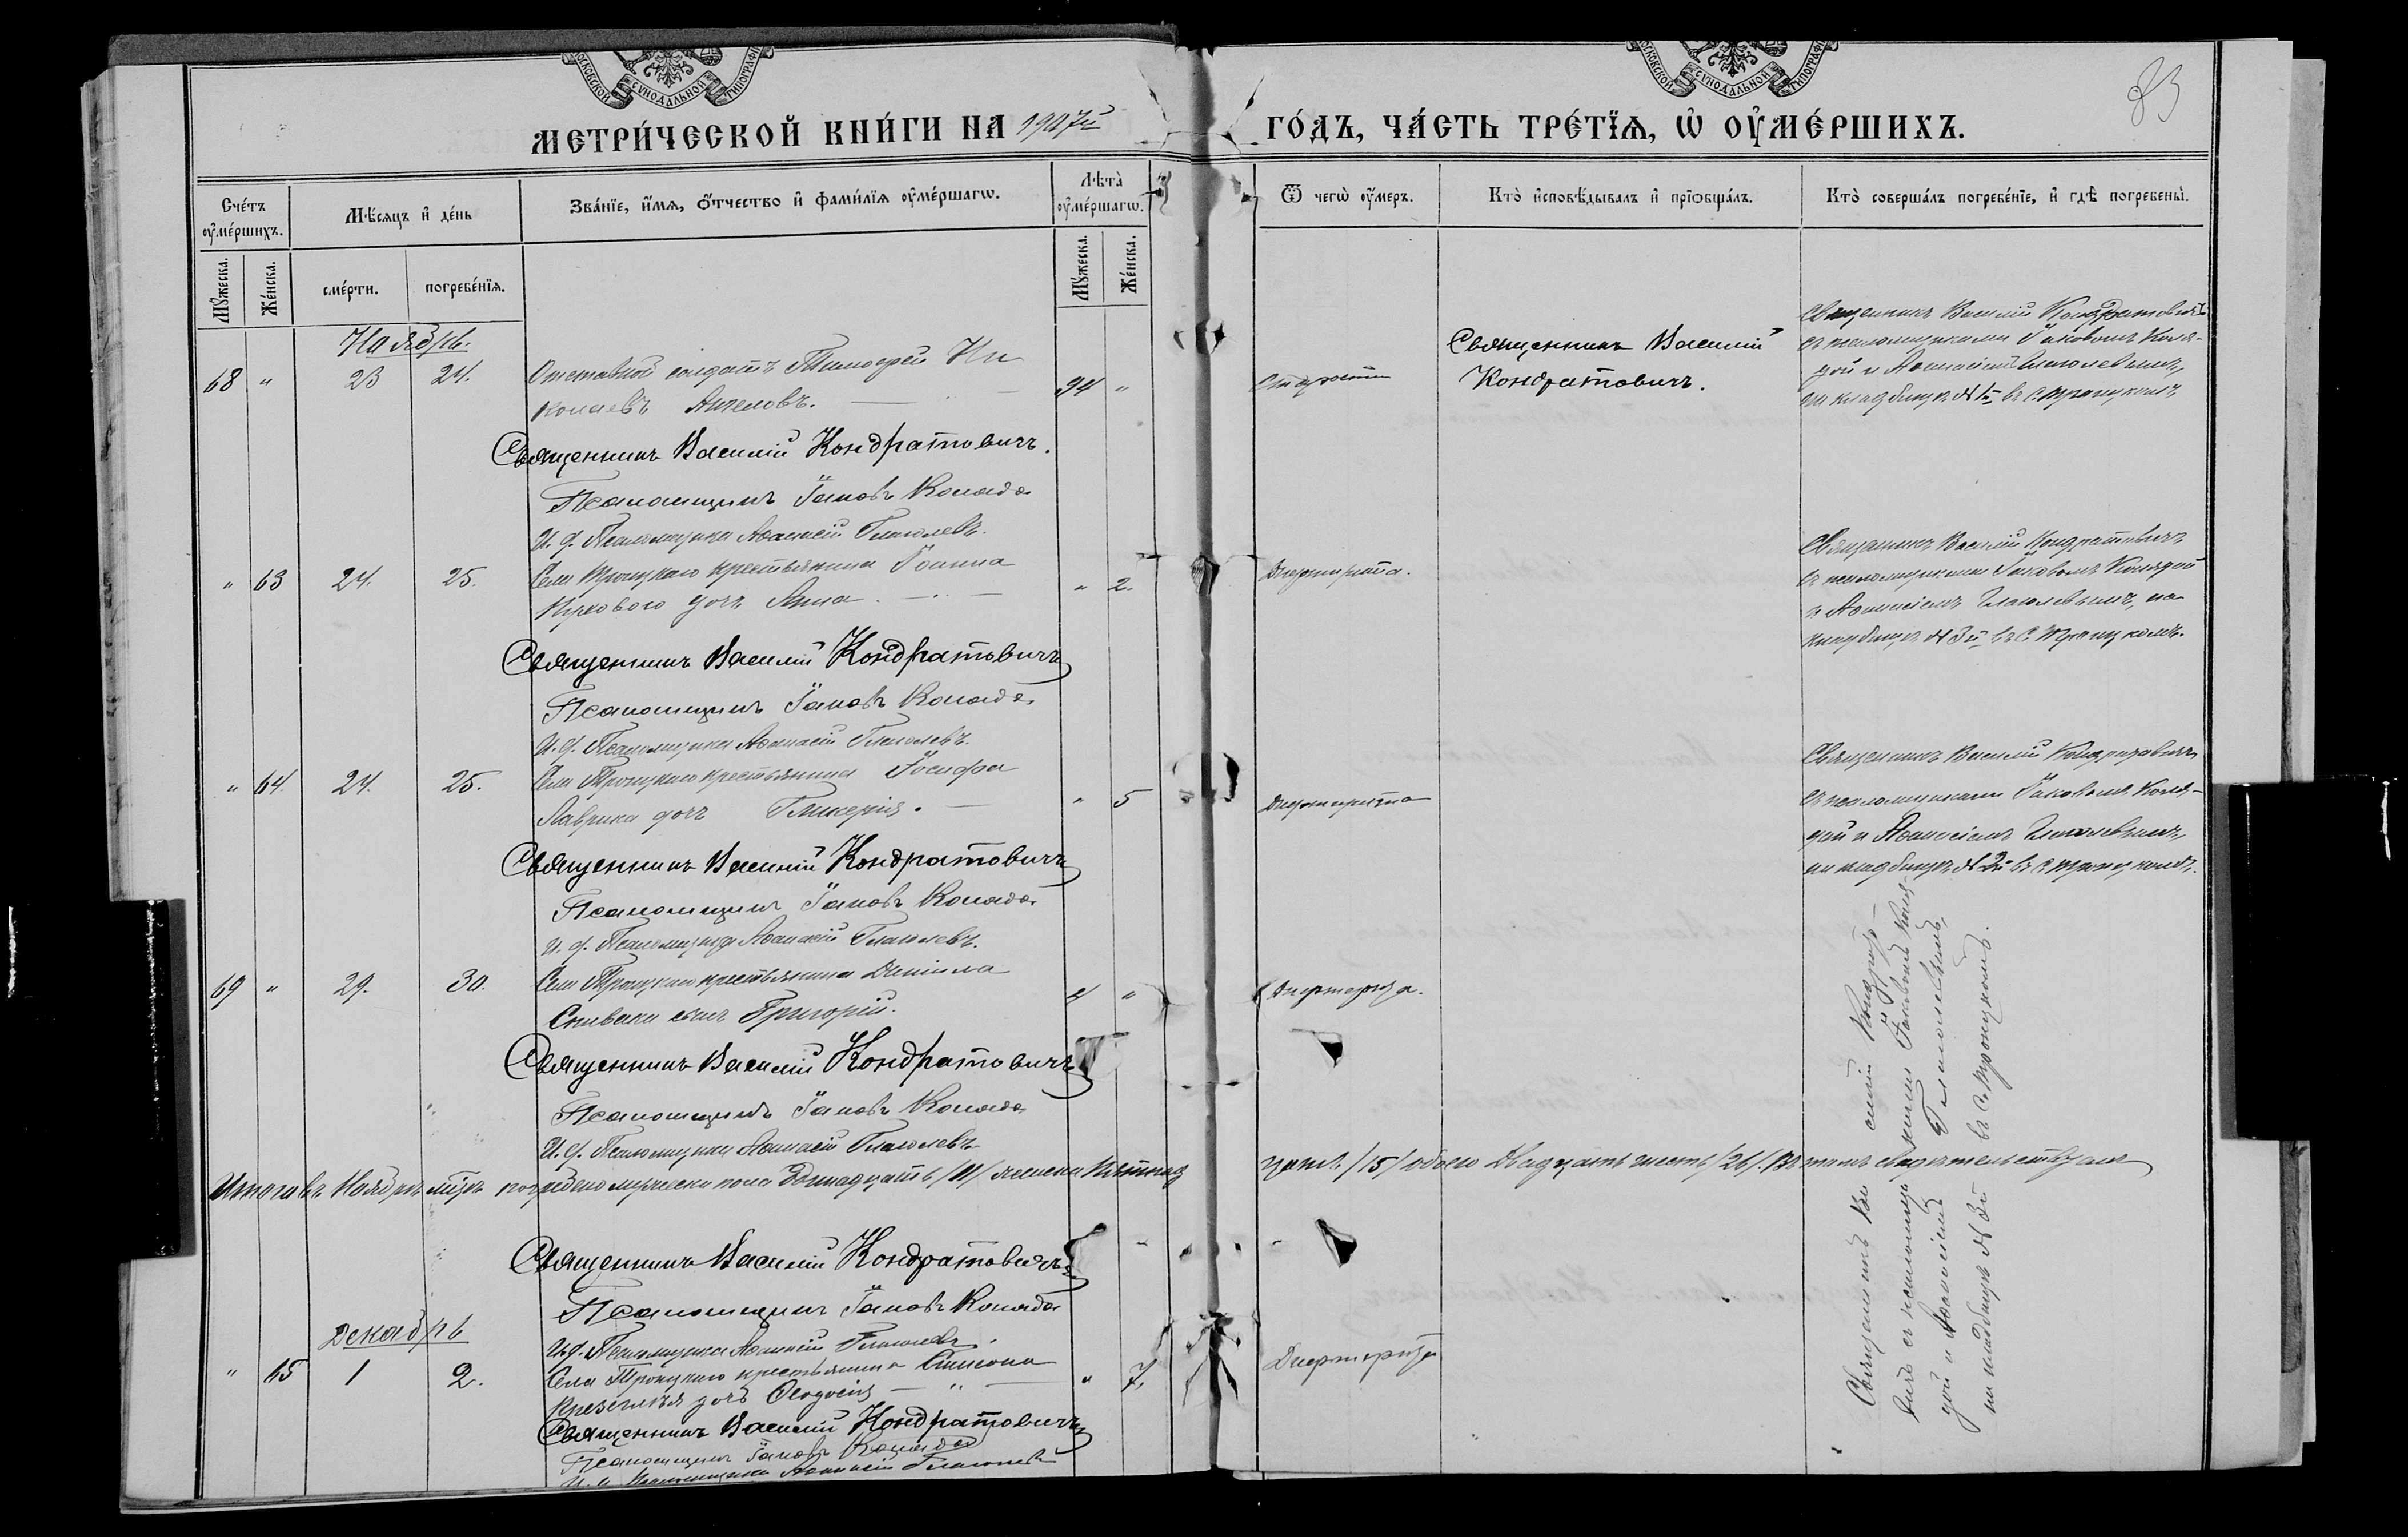 МОСКОВСКОЙ СѴНОДАЛЬНОЙ ТИПОГРАФІИ
МОСКОВСКОЙ СѴНОДАЛЬНОЙ ТИПОГРАФІИ
83
МЕТРИ́ЧЕСКОЙ КНИ́ГИ НА 1907й ГО́ДЪ, ЧА́СТЬ ТРЕ́ТЇѦ, Ѡ҆ ОУ҆МЕ́РШИХЪ.
Сче́тъ оу҆ме́ршихъ.
Мѣ́сѧцъ и҆ де́нь
Зва́нїе, и҆́мѧ, ѻ҆́тчество и҆ фами́лїѧ оу҆ме́ршагѡ.
Лѣта̀ оу҆ме́ршагѡ.
Ѿ чегѡ̀ оу҆́меръ.
Кто̀ и҆сповѣ́дывалъ и҆ прїѡбща́лъ.
Кто̀ соверша́лъ погребе́нїе, и҆ гдѣ̀ погребены̀.
Мꙋ́жеска.
Же́нска.
сме́рти.
погребе́нїѧ.
Мꙋ́жеска.
Же́нска.
Ноябрь.
68 " 23 24. Отставной солдатъ Тимофей Ни
колаевъ Ангеловъ. — 94 "
Старости
Священникъ Василій
Кондратовичъ.
Священникъ Василій Кондратовичъ
съ псаломщиками Іаковомъ Коля-
дой и Афанасіемъ Глаголевымъ,
на кладбищѣ № 1й въ с. Троицкомъ
Священникъ Василій Кондратовичъ.
Псаломщикъ Іаковъ Коляда
И. д. Псаломщика Афанасій Глаголевъ.
" 63 24. 25. Села Троицкаго крестьянина Іоанна
дочь Анна. — " 2.
Дифтерита.
Священникъ Василій Кондратовичъ
съ псаломщиками Іаковомъ Колядой
и Афанасіемъ Глаголевымъ, на
кладбищѣ № 3й въ с. Троицкомъ.
Священникъ Василій Кондратовичъ
Псаломщикъ Іаковъ Коляда
И. д. Псаломщика Афанасій Глаголевъ.
" 64. 24. 25. Села Троицкаго крестьянина Іосифа
Лаврика дочь Гликерія. — " 5
Дифтерита
Священникъ Василій Кондратовичъ
съ псаломщиками Іаковомъ Коля-
дой и Афанасіемъ Глаголевымъ,
на кладбищѣ № 2й въ с. Троицкомъ.
Священникъ Василій Кондратовичъ
Псаломщикъ Іаковъ Коляда
И. д. Псаломщика Афанасій Глаголевъ.
69 " 29. 30. Села Троицкаго крестьянина Даніила
Спиваки сынъ Григорій. 4 "
Дифтерита.
Священникъ Василій Кондратовичъ
Псаломщикъ Іаковъ Коляда
И. д. Псаломщика Афанасій Глаголевъ
Итого въ Ноябрѣ мѣсяцѣ погребено мужеска пола Одинадцать /11/ женска Пятнад
цать /15/ обоего Двадцать шесть /26/. Въ томъ свидѣтельствуемъ
Священникъ Василій Кондратовичъ
Псаломщикъ Іаковъ Коляда
И. д. Псаломщика Афанасій Глаголевъ.
Декабрь
" 65 1 2. Села Троицкаго крестьянина Симеона
дочь Феодосія — " — " 7.
Дифтерита
Священникъ Василій Кондрато-
вичъ съ псаломщиками Іаковомъ Коля-
дой и Афанасіемъ Глаголевымъ,
на кладбищѣ № 3й въ с. Троицкомъ.
Священникъ Василій Кондратовичъ
Псаломщикъ Іаковъ Коляда
И. д. Псаломщика Афанасій Глаголевъ